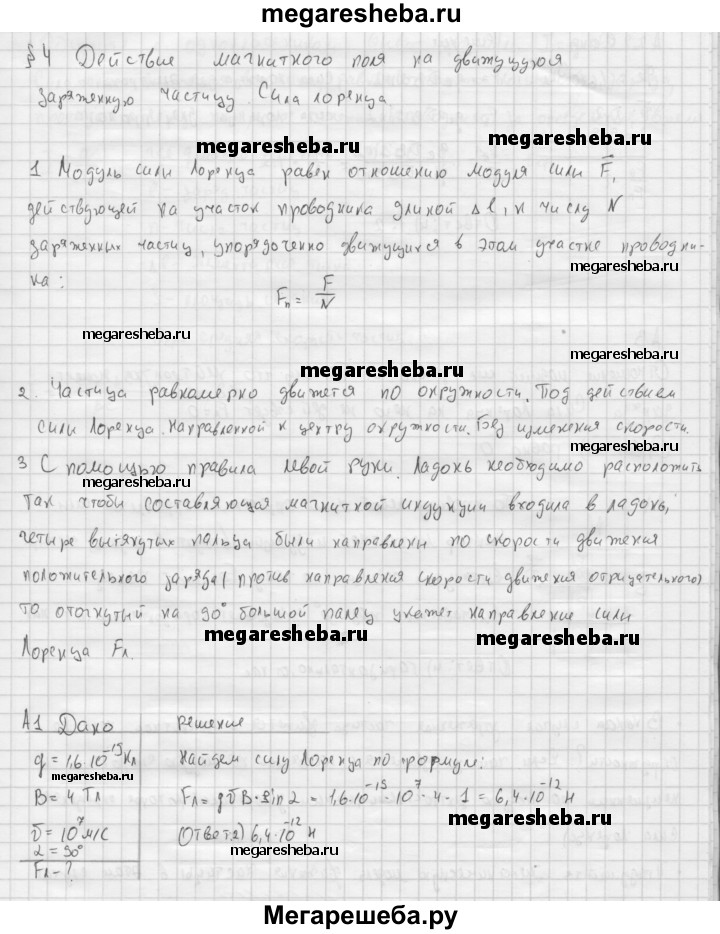 megaresheba.ru
§4 Действие магнитного поля на движущуюся
заряженную частицу. Сила лоренца
megaresheba.ru
megaresheba.ru
1 Модуль сили Лоренца равен отношению модуля сили F⃗,
действующей на участок проводника длиной Δl, к числу N
заряженных частиц, упорядоченно движущихся в этом участке проводни-
megaresheba.ru
ка:
Fл = F/N
megaresheba.ru
megaresheba.ru
megaresheba.ru
2. Частица равномерно движется по окружности. Под действием
сили Лоренца. Направленной к центру окружности. Без изменения скорости.
megaresheba.ru
3 С помощью правила левой руки. Ладонь необходимо расположить
megaresheba.ru
так чтоби составляющая магнитной индукции входила в ладонь,
четыре вытянутых пальца были направлены по скорости движения
положительного заряда (против направления скорости движения отрицательного)
то отогнутый на 90° большой палец укажет направление сили
megaresheba.ru
megaresheba.ru
Лоренца Fл.
А1 Дано
решение
q = 1,6·10⁻¹⁹ Кл
Найдем силу Лоренца по формул:
megaresheba.ru
B = 4 Тл
Fл = qυB·sin α = 1,6·10⁻¹⁹·10⁷·4·1 = 6,4·10⁻¹² Н
megaresheba.ru
υ = 10⁷ м/с
(Ответ 2) 6,4·10⁻¹² Н
α = 90°
megaresheba.ru
Fл - ?
Мегарешеба.ру